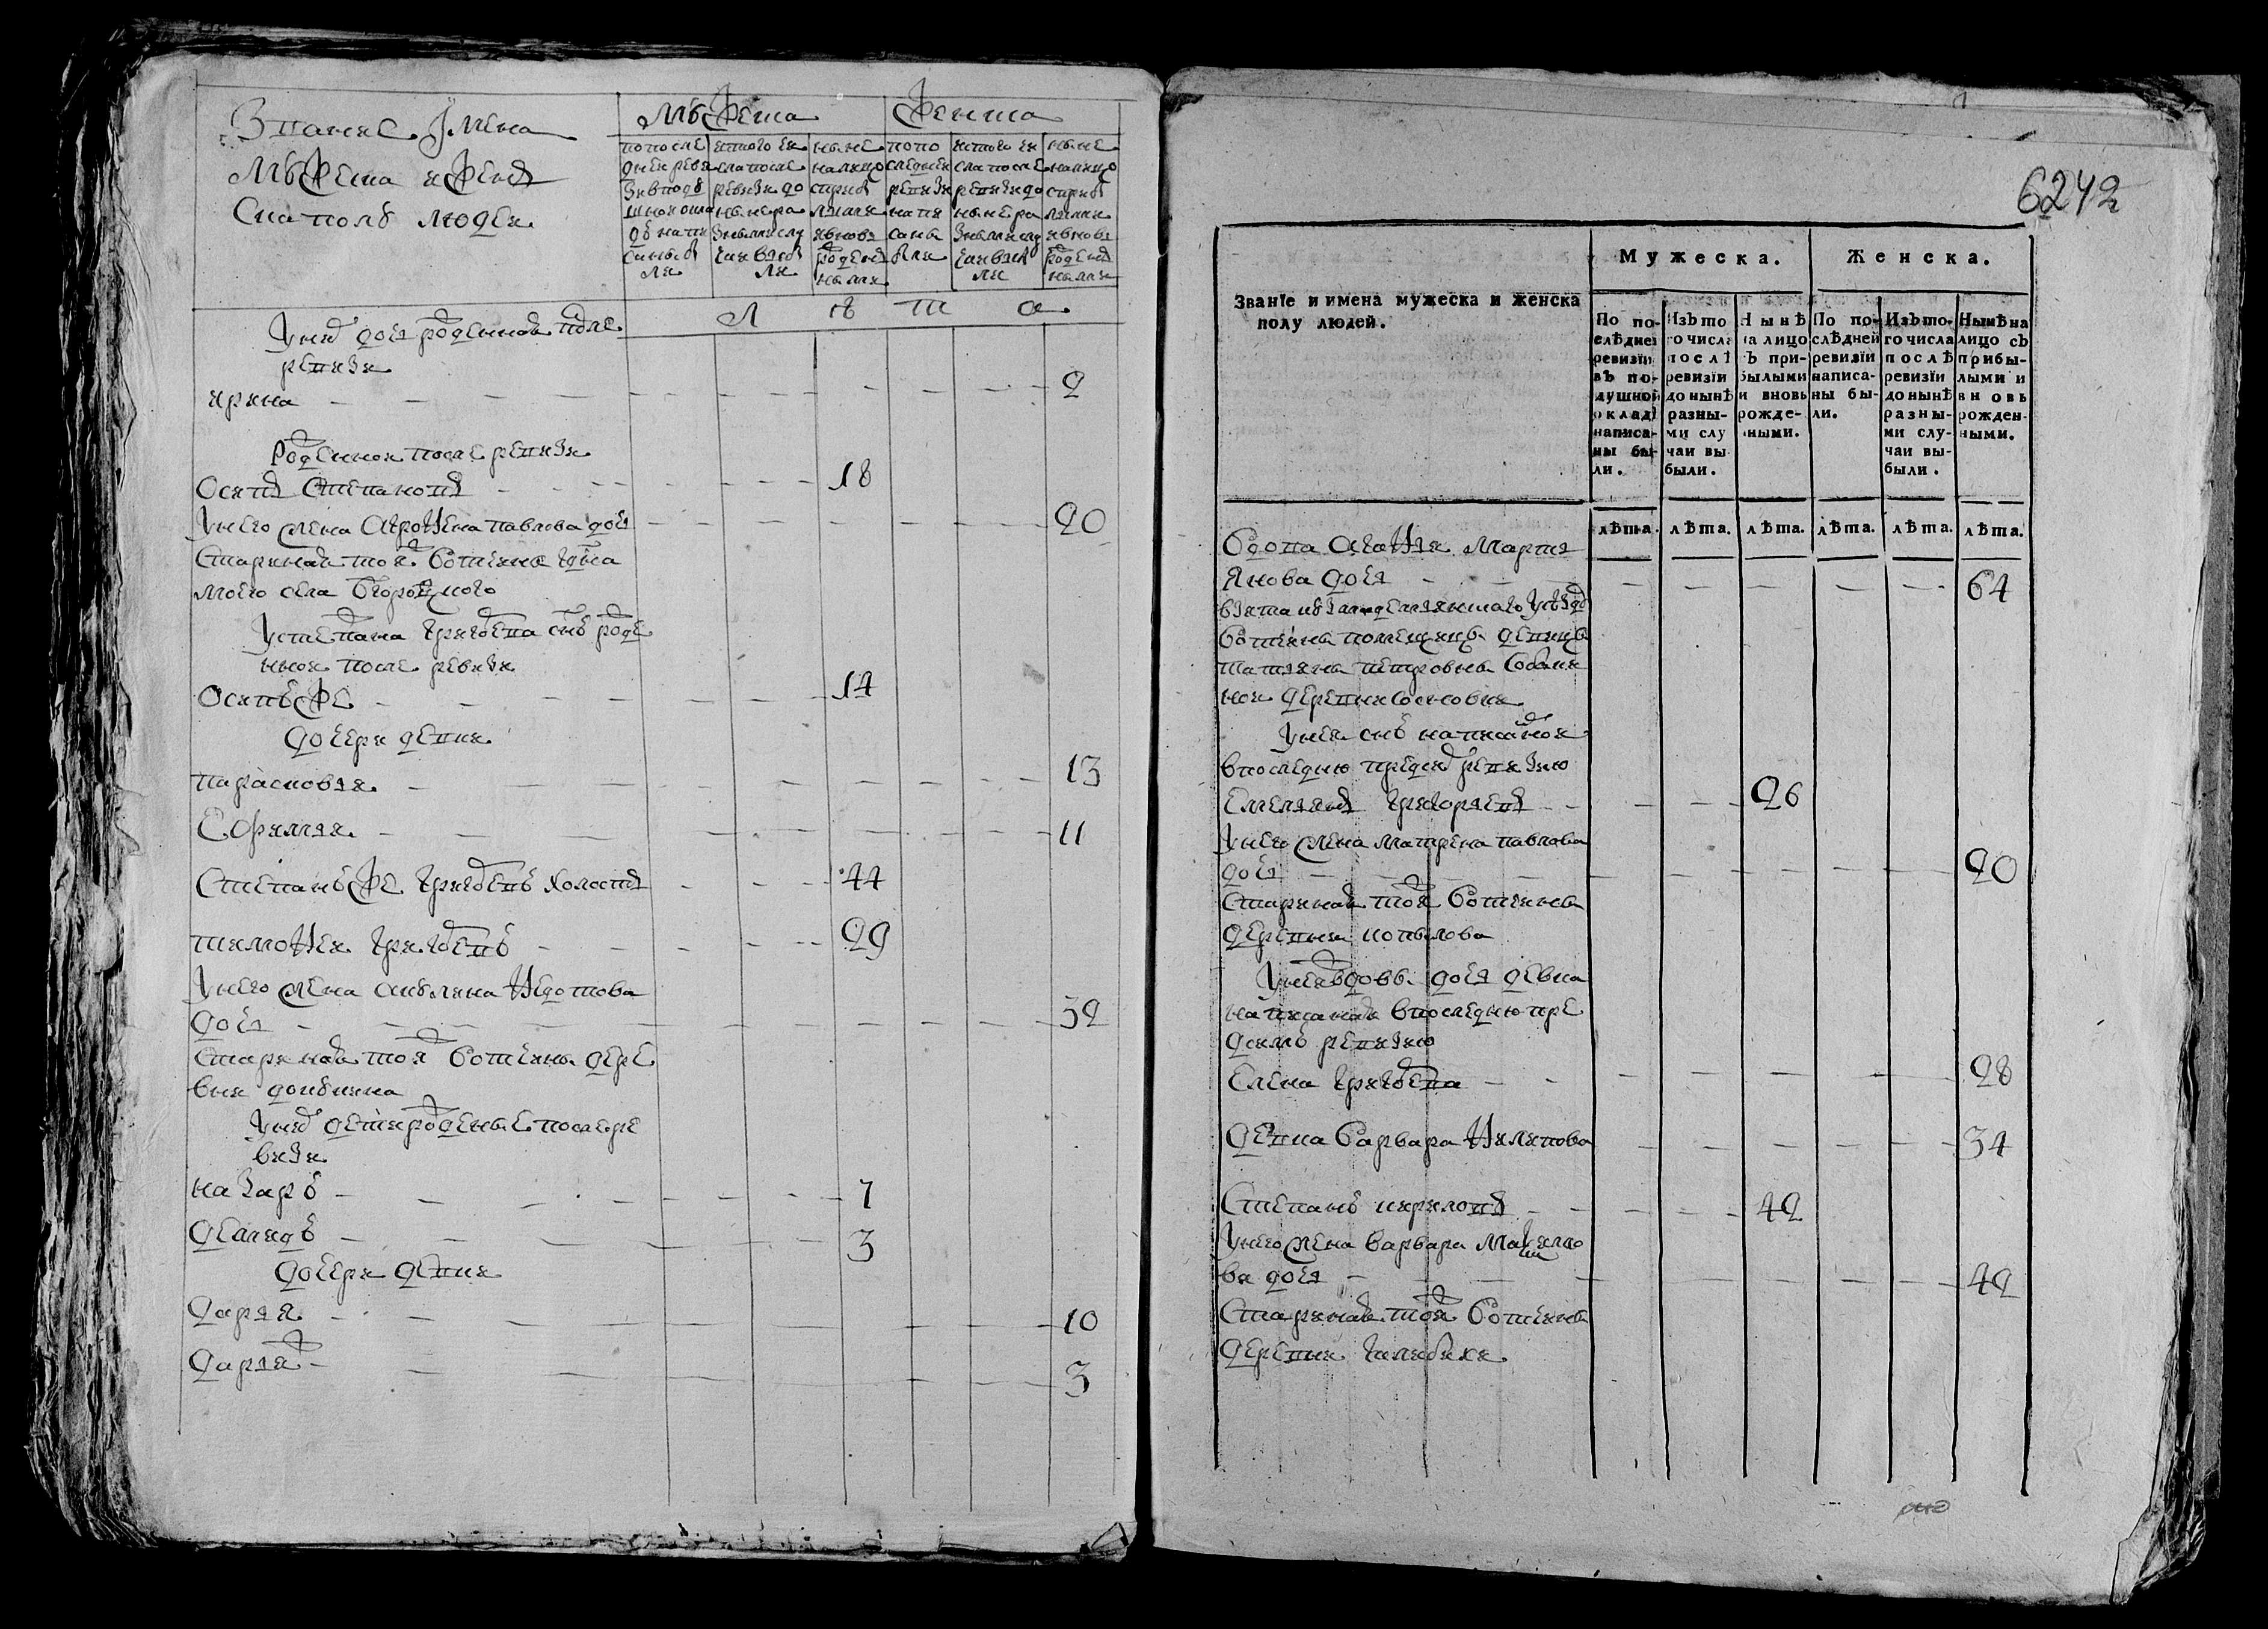 Звание Імена
Мужеска иженд
Ска полу людеи
Мужеска
Женска
попосле
днеи реви
зиі вподу
шнои окла
де напи
саны бы
ли
истого чи
сла после
ревизи до
ныне ра
зными слу
чаи выбы
ли
ныне
налицо
сприбы
лыми
ивновь
рожден
ными
попо
следнеи
ревизи
напи
саны
были
истого чи
сла после
ревизи до
ныне ра
зными слу
чаи выбы
ли
ныне
налицо
сприбы
лыми
ивновь
рожден
ными
л ѣ т а
Уних дочь рожденная после
ревизи
ирина 2
Рожденнои после ревизи
Осипъ Степановъ 18
Унего жена Афросинья павлова дочь 20
Старинная тои вотчины
моего села Богородцкого
Устепана григорьева сынъ роже
ннои после ревизи
Осипъ же 14
дочери девки
парасковья 13
Ефимья 11
Степанъ же григорьевъ холостъ 44
тимофеи григорьевъ 29
Унего жена акулина федотова
дочь 32
Старинная тои вотчины дере
вни
Уних дети рожденные после ре
визи
назаръ 7
демидъ 3
дочери девки
дарья 10
дарья 3
6242
Званіе и имена мужеска и женска
полу людей.
Мужеска.
Женска.
По по-
слѣдней
ревизіи
въ по-
душной
окладѣ
написа-
ны бы-
ли.
Изъ то
го числа
послѣ
ревизіи
до нынѣ
разны-
ми слу
чаи вы
были.
Нынѣ
на лицо
съ при-
былыми
и вновь
рожде-
нными.
По по-
слѣдней
ревизіи
написа-
ны бы-
ли.
Изъ то-
го числа
послѣ
ревизіи
до нынѣ
разны-
ми слу-
чаи вы-
были.
Нынѣ на
лицо съ
прибы-
лыми и
вновь
рожден-
ными.
лѣта. лѣта. лѣта. лѣта. лѣта. лѣта.
Вдова Агафья Марти
Янова дочь 64
взята уезду
вотчины помещицы девицы
татьяны петровны
нои деревни сосновки
Унеи сынъ написаннои
впоследнюю пред сим ревизию
Емельянъ григорьевъ 26
Унего жена матрена павлова
дочь 20
Старинная тои вотчины
деревни копылова
Унеи вдовы дочь девка
написаная впоследнюю пре
дсимъ ревизию
Елена григорьева 28
девка Варвара филипова 34
Степанъ кириловъ 42
Унего жена варвара Максимо
ва дочь 42
Старинная тои вотчины
деревни